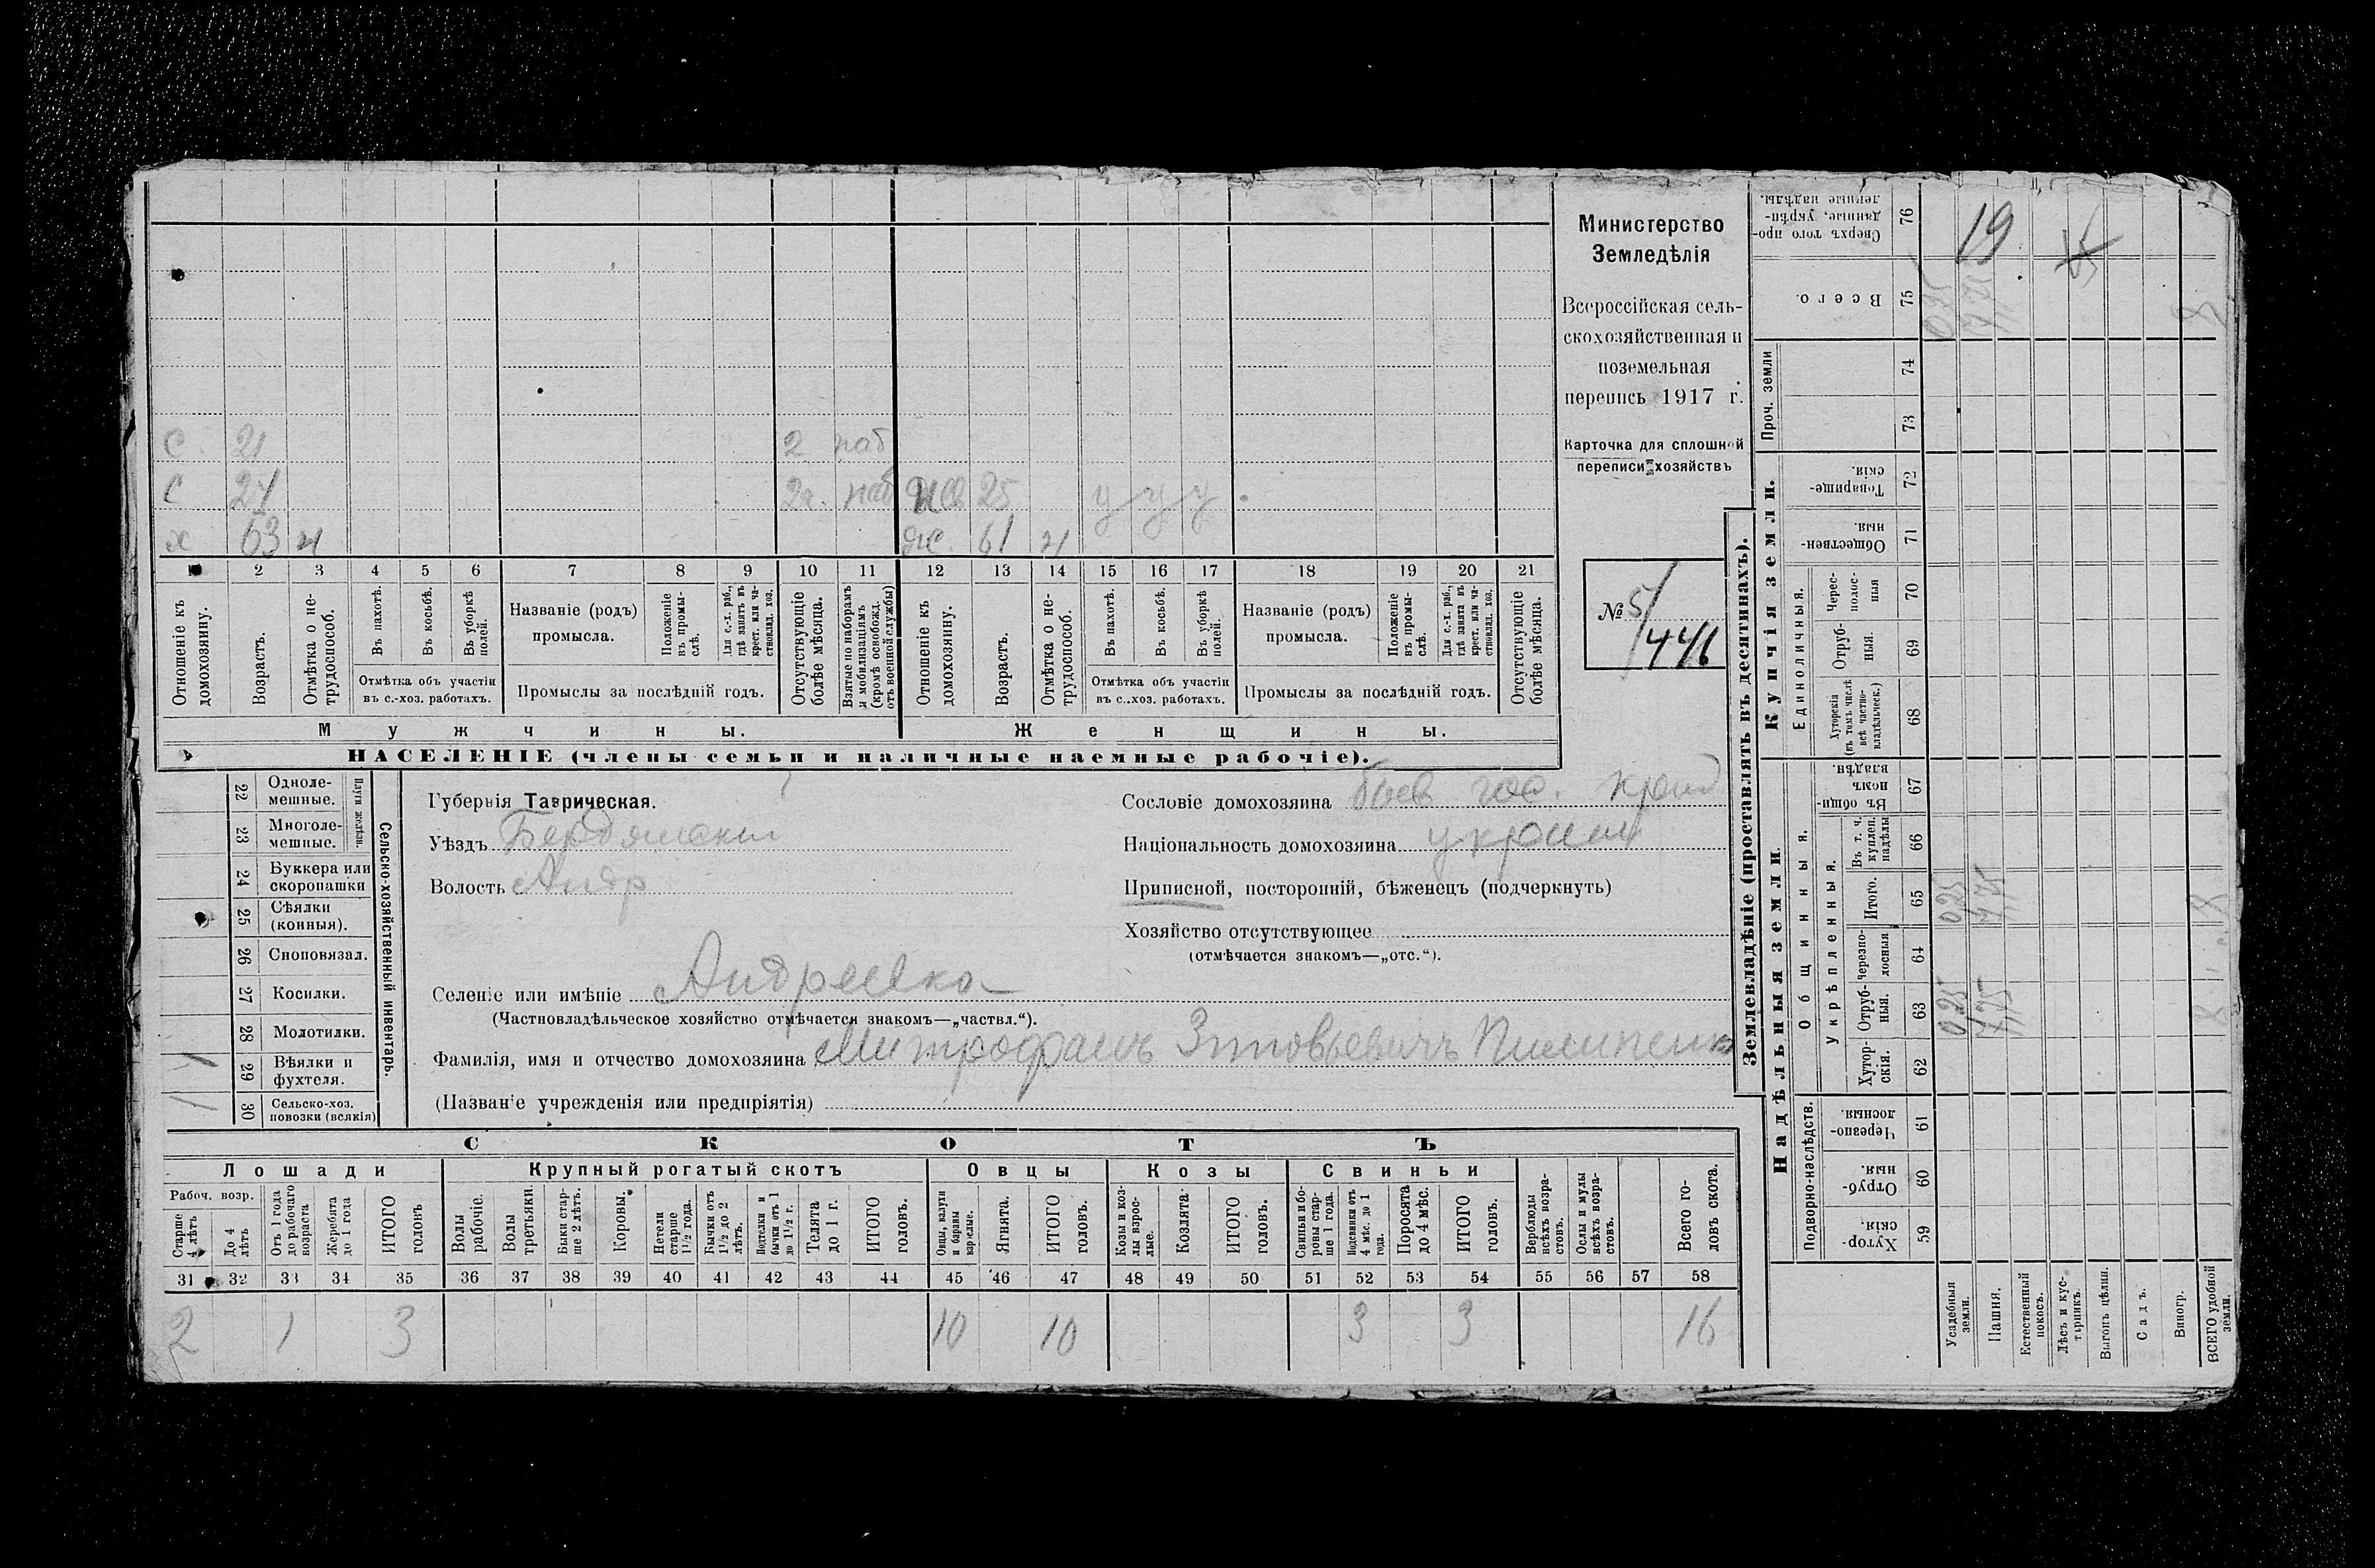 Министерство
Земледѣлія
Всероссійская сель-
скохозяйственная и
поземельная
перепись 1917 г.
Карточка для сплошной
переписи хозяйствъ
№ 5/446
С. 21 2 наб
С 27 2г. наб жс 25 у у у
х 63 н ж 61 н
1 2 3 4 5 6 7 8 9 10 11 12 13 14 15 16 17 18 19 20 21
Отношеніе къ домохозяину.
Возрастъ.
Отмѣтка о не-трудоспособ.
Въ пахотѣ.
Въ косьбѣ.
Въ уборкѣ полей.
Отмѣтка объ участіи въ с.-хоз. работахъ.
Названіе (родъ) промысла.
Положеніе въ промы-слѣ.
Для с.-х. раб., гдѣ занятъ въ крест. или ча-стновлад. хоз.
Промыслы за послѣдній годъ.
Отсутствующіе болѣе мѣсяца.
Взятые по наборамъ и мобилизаціямъ (кромѣ освобожд. отъ военной службы)
Отношеніе къ домохозяину.
Возрастъ.
Отмѣтка о не-трудоспособ.
Въ пахотѣ.
Въ косьбѣ.
Въ уборкѣ полей.
Отмѣтка объ участіи въ с.-хоз. работахъ.
Названіе (родъ) промысла.
Положеніе въ промы-слѣ.
Для с.-х. раб., гдѣ занята въ крест. или ча-стновлад. хоз.
Промыслы за послѣдній годъ.
Отсутствующіе болѣе мѣсяца.
Мужчины. Женщины.
НАСЕЛЕНІЕ (члены семьи и наличные наемные рабочіе).
22 Одноле-мешные.
23 Многоле-мешные.
Плуги желѣзн.
24 Буккера или скоропашки
25 Сѣялки (конныя).
26 Сноповязал.
27 Косилки.
28 Молотилки.
29 Вѣялки и фухтеля. 1
30 Сельско-хоз. повозки (всякія) 1
Сельско-хозяйственный инвентарь.
Губернія Таврическая.
Уѣздъ Бердянскій
Волость Андр
Сословіе домохозяина быв гос. крест
Національность домохозяина украин
Приписной, посторонній, бѣженецъ (подчеркнуть)
Хозяйство отсутствующее
(отмѣчается знакомъ—„отс.“).
Селеніе или имѣніе Андреевка
(Частновладѣльческое хозяйство отмѣчается знакомъ—„частвл.“).
Фамилія, имя и отчество домохозяина Митрофанъ Зиновьевичъ Пилипенко
(Названіе учрежденія или предпріятія)
СКОТЪ
Лошади Крупный рогатый скотъ Овцы Козы Свиньи
Рабоч. возр.
Старше 4 лѣтъ
До 4 лѣтъ
Отъ 1 года до рабочаго возраста
Жеребята до 1 года
ИТОГО головъ
Волы рабочіе.
Волы третьяки.
Быки стар-ше 2 лѣтъ.
Коровы.
Нетели старше 1½ года.
Бычки отъ 1½ до 2 лѣтъ.
Подтелки и бычки отъ 1 до 1½ г.
Телята до 1 г.
ИТОГО головъ.
Овцы, валухи и бараны взрослые.
Ягнята.
ИТОГО головъ.
Козы и коз-лы взрос-лые.
Козлята
ИТОГО головъ.
Свиньи и бо-ровы стар-ше 1 года.
Подсвинки отъ 4 мѣс. до 1 года.
Поросята до 4 мѣс.
ИТОГО головъ.
Верблюды всѣхъ возра-стовъ.
Ослы и мулы всѣхъ возра-стовъ.
Всего го-ловъ скота.
31 32 33 34 35 36 37 38 39 40 41 42 43 44 45 46 47 48 49 50 51 52 53 54 55 56 57 58
2 1 3 10 10 3 3 16
Землевладѣніе (проставлять въ десятинахъ).
Надѣльныя земли. Купчія земли. Проч. земли
Подворно-наслѣдств.
Общинныя.
Укрѣпленныя.
Единоличныя.
Хутор-скія. 59
Отруб-ныя. 60
Черезпо-лосныя. 61
Хутор-скія. 62
Отруб-ныя. 63 0,25 7,75 8
Черезпо-лосныя 64
Итого. 65 0,25 7,75 8
Въ т. ч. куплен. надѣлы 66
Въ общин-номъ владѣн. 67
Хуторскія (въ томъ числѣ всѣ частно-владѣльческ.) 68
Отруб-ныя. 69
Черес-полос-ныя 70
Обществен-ныя. 71
Товарище-скія. 72
73
74
Всего. 75 0,25 7,75 8
Сверхъ того про-данные, укрѣп-ленные надѣлы. 76 19
Усадебныя земли.
Пашня.
Естественный покосъ.
Лѣсъ и кус-тарникъ.
Выгонъ цѣлин.
Садъ.
Виногр.
ВСЕГО удобной земли.